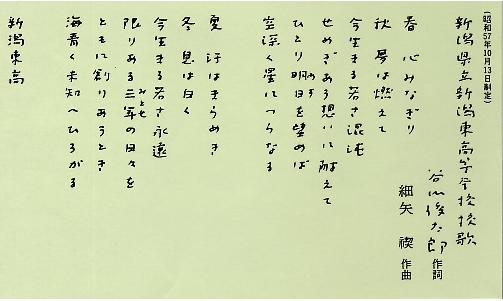 (昭和57年10月13日制定)
新潟県立新潟東高等学校校歌
谷川俊太郎 作詞
細矢 禊 作曲
春 心みなぎり
秋 夢は燃えて
今生きる若さ混沌
せめぎあう想いに耐えて
ひとり明日を望めば
あす
空深く星につらなる
夏 汗はきらめき
冬 息は白く
今生きる若さ永遠
限りある三年の日々を
みとせ
ともに創りあうとき
海青く未知へひろがる
新潟東高